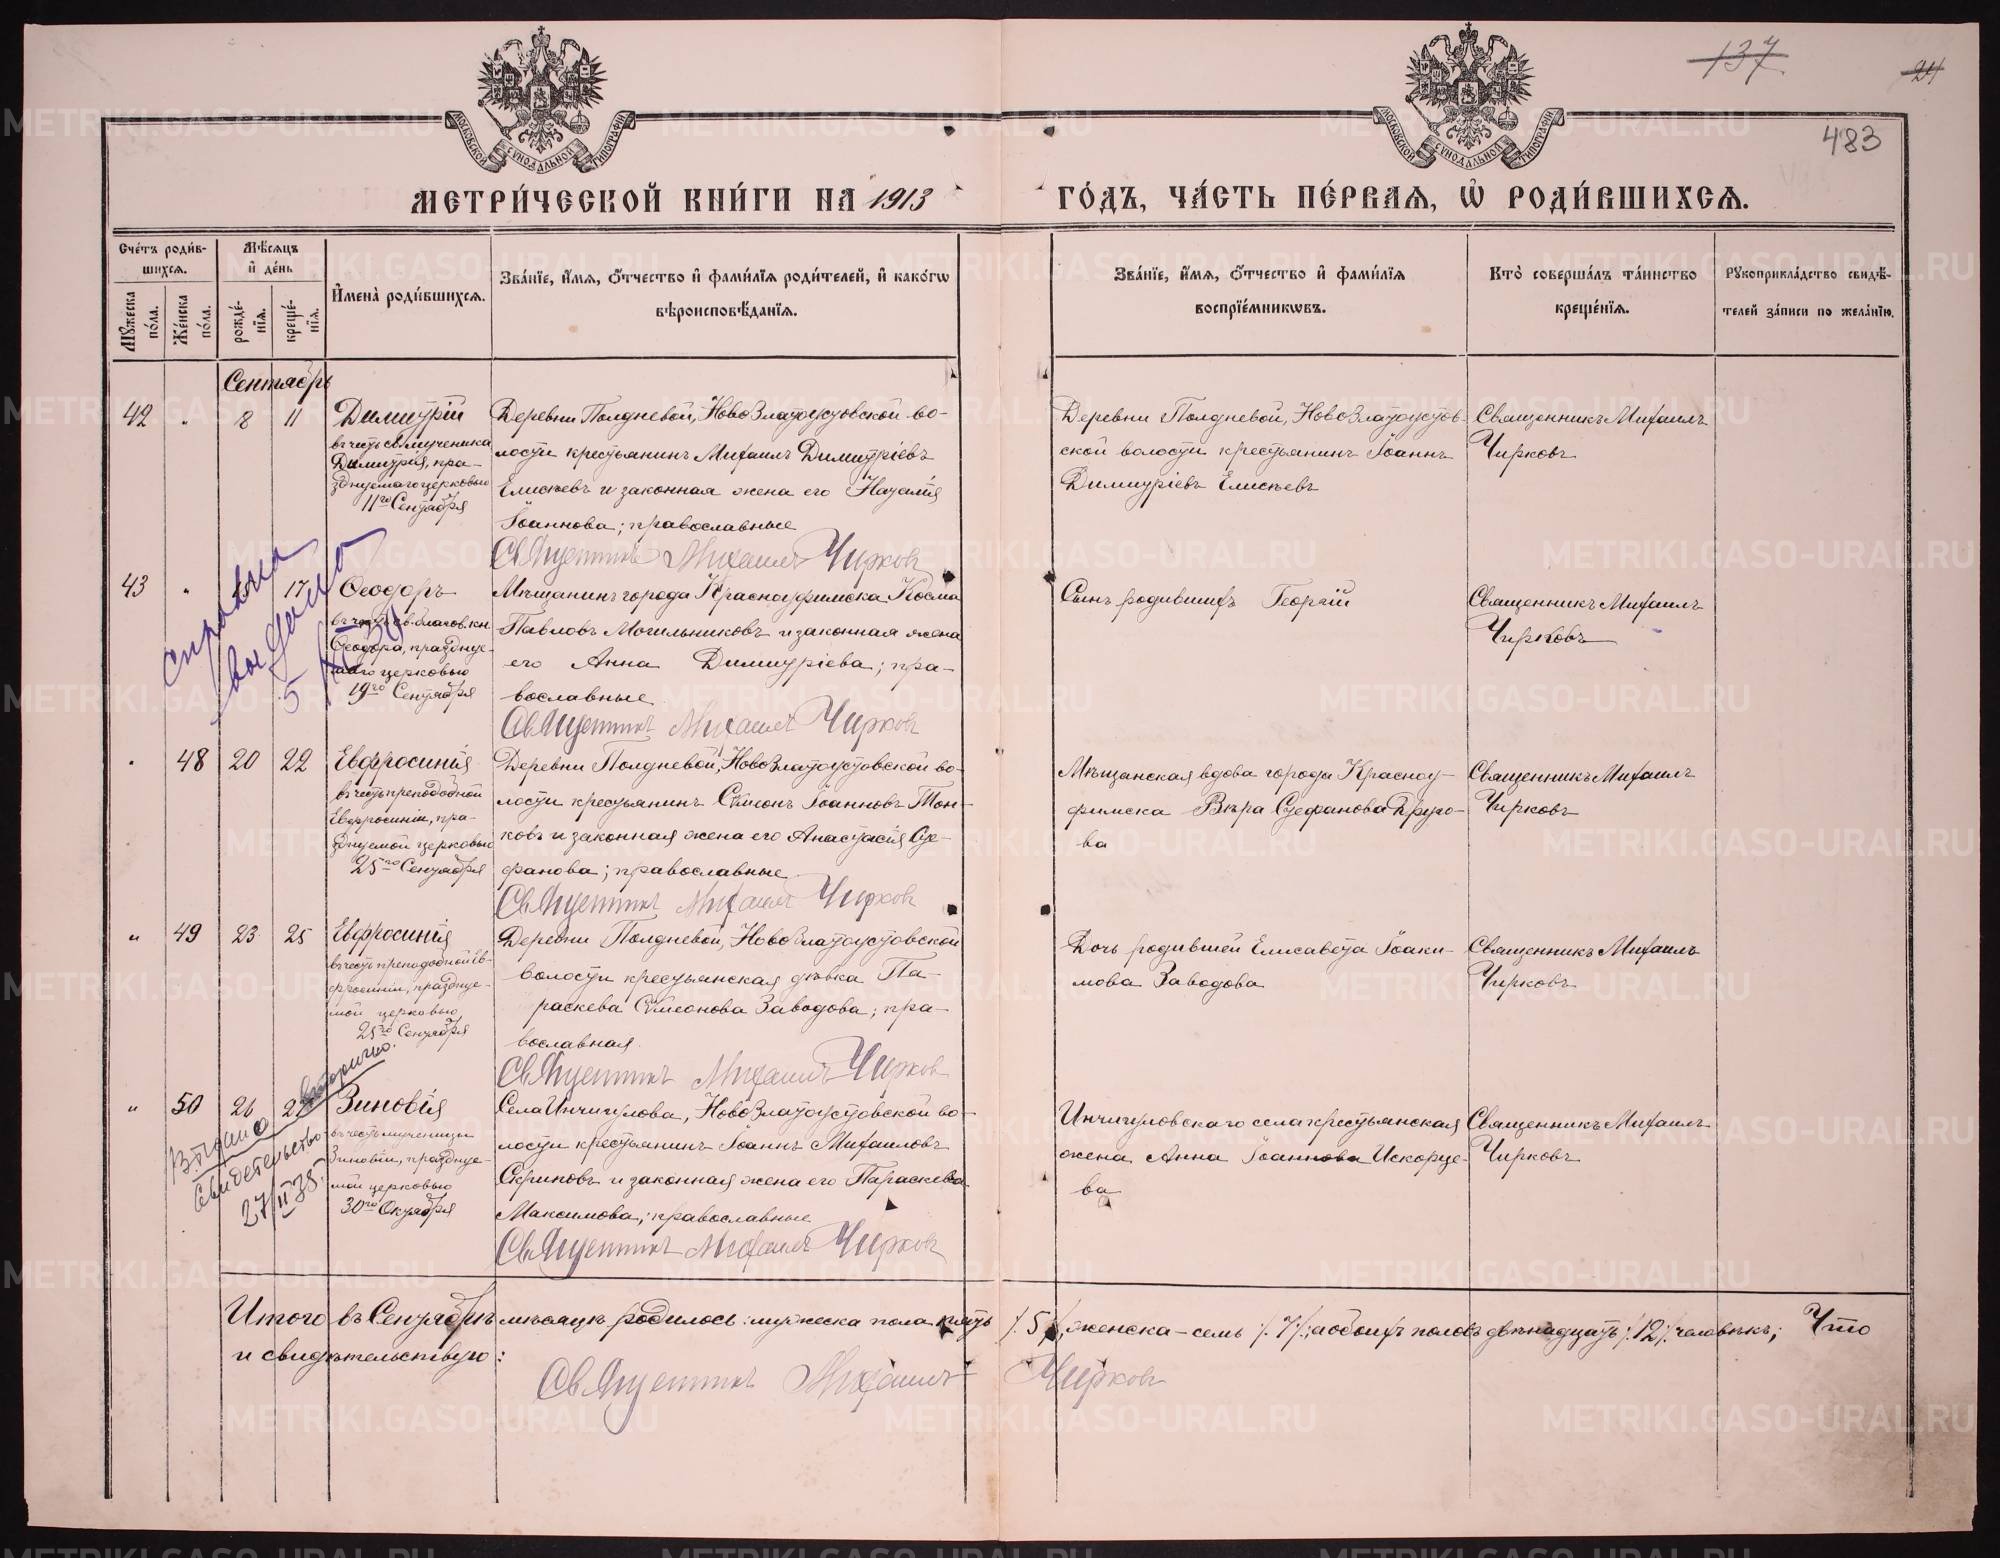 137
24
483
МОСКОВСКОЙ СУНОДАЛЬНОЙ ТИПОГРАФІИ
МОСКОВСКОЙ СУНОДАЛЬНОЙ ТИПОГРАФІИ
МЕТРИ́ЧЕСКОЙ КНИ́ГИ НА 1913 ГО́ДЪ, ЧА́СТЬ ПЕ́РВАѦ, Ѡ҆ РОДИ́ВШИХСѦ.
Счéтъ роди́в-
шихсѧ.
Мѣ́сѧцъ
и҆ дéнь
Мꙋ́жеска пóла.
Жéнска пóла.
рождé-
нїѧ.
крещé-
нїѧ.
И҆менà роди́вшихсѧ.
Звáнїе, и҆́мѧ, ѻ҆́тчество и҆ фами́лїѧ роди́телей, и҆ какóгѡ
вѣроисповѣ́данїѧ.
Звáнїе, и҆́мѧ, ѻ҆́тчество и҆ фами́лїѧ
воспрїéмникѡвъ.
Ктò совершáлъ тáинство
крещéнїѧ.
Рꙋкоприклáдство свидѣ́-
телей зáписи по желáнїю.
Сентябрь
42 " 8 11 Димитрій
въ честь св. мученика
Димитрія, пра-
зднуемаго церковью
11го Сентября
Деревни Полдневой, НовоЗлатоустовской во-
лости крестьянинъ Михаилъ Димитріевъ
Елисѣевъ и законная жена его Наталія
Іоаннова; православные
Священникъ Михаилъ Чирковъ
Деревни Полдневой, НовоЗлатоустов-
ской волости крестьянинъ Іоаннъ
Димитріевъ Елисѣевъ
Священникъ Михаилъ
Чирковъ
43 " 17 Ѳеодоръ
въ честь св. благов. кн.
Ѳеодора, празднуе-
маго церковью
19го Сентября
справка
выдана
5
Мѣщанинъ города Красноуфимска Косма
Павловъ Могильниковъ и законная жена
его Анна Димитріева; пра-
вославные
Священникъ Михаилъ Чирковъ
Сынъ родившихъ Георгій
Священникъ Михаилъ
Чирковъ
" 48 20 22 Евфросинія
въ честь преподобной
Евфросиніи, пра-
зднуемой церковью
25го Сентября
Деревни Полдневой, НовоЗлатоустовской во-
лости крестьянинъ Сѵмеонъ Іоанновъ Тон-
ковъ и законная жена его Анастасія Сте-
фанова; православные
Священникъ Михаилъ Чирковъ
Мѣщанская вдова города Красноу-
фимска Вѣра Стефанова Круго-
ва
Священникъ Михаилъ
Чирковъ
" 49 23 25 Евфросинія
въ честь преподобной Ев-
фросиніи, празднуе-
мой церковью
25го Сентября
Деревни Полдневой, НовоЗлатоустовской
волости крестьянская дѣвка Па-
раскева Сѵмеонова Заводова; пра-
вославная
Священникъ Михаилъ Чирковъ
Дочь родившей Елисавета Іоаки-
мова Заводова
Священникъ Михаилъ
Чирковъ
" 50 26 27 Зиновія
въ честь мученицы
Зиновіи, празднуе-
мой церковью
30го Октября
Выдано вторично.
Свидетельство
27/II 38
Села Инчигулова, НовоЗлатоустовской во-
лости крестьянинъ Іоаннъ Михаиловъ
Скриповъ и законная жена его Параскева
Максимова; православные
Священникъ Михаилъ Чирковъ
Инчигуловскаго села крестьянская
жена Анна Іоаннова Искорце-
ва
Священникъ Михаилъ
Чирковъ
Итого въ Сентябрѣ мѣсяцѣ родилось: мужеска пола пять /.5./, женска - семь /.7./; а обоихъ половъ двѣнадцать /.12./ человѣкъ; Что
и свидѣтельствую:
Священникъ Михаилъ Чирковъ
METRIKI.GASO-URAL.RU